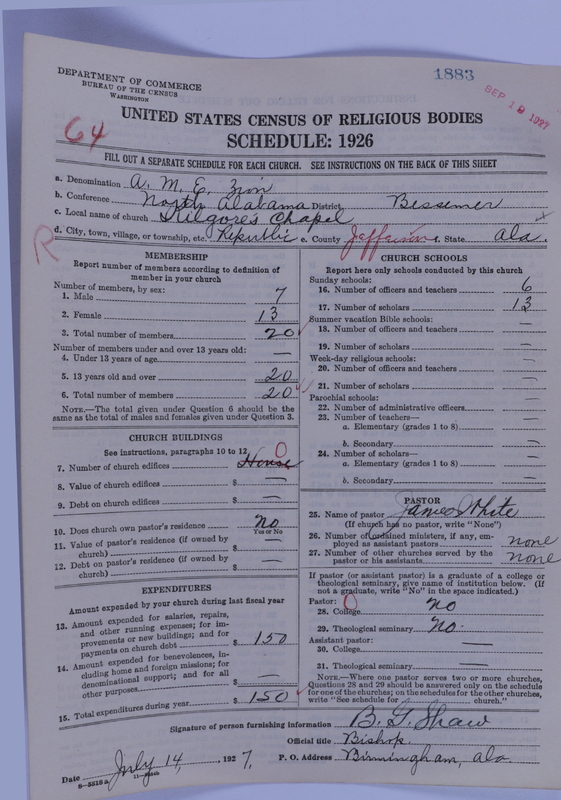 1883
SEP 19 1927
DEPARTMENT OF COMMERCE
BUREAU OF THE CENSUS
WASHINGTON
64
UNITED STATES CENSUS OF RELIGIOUS BODIES
SCHEDULE: 1926
FILL OUT A SEPARATE SCHEDULE FOR EACH CHURCH. SEE INSTRUCTIONS ON THE BACK OF THIS SHEET
a. Denomination A. M. E. Zion
b. Conference North Alabama District Bessemer
c. Local name of church Kilgore's Chapel
d. City, town, village, or township, etc. Republic e. County Jefferson f. State Ala.
R
MEMBERSHIP
Report number of members according to definition of
member in your church
Number of members, by sex:
1. Male 7
2. Female 13
3. Total number of members 20
Number of members under and over 13 years old:
4. Under 13 years of age —
5. 13 years old and over 20
6. Total number of members 20
NOTE.—The total given under Question 6 should be the
same as the total of males and females given under Question 3.
CHURCH BUILDINGS
See instructions, paragraphs 10 to 12
7. Number of church edifices House 0
8. Value of church edifices $ —
9. Debt on church edifices $ —
10. Does church own pastor's residence No
Yes or No
11. Value of pastor's residence (if owned by
church) $ —
12. Debt on pastor's residence (if owned by
church) $ —
EXPENDITURES
Amount expended by your church during last fiscal year
13. Amount expended for salaries, repairs,
and other running expenses; for im-
provements or new buildings; and for
payments on church debt $ 150
14. Amount expended for benevolences, in-
cluding home and foreign missions; for
denominational support; and for all
other purposes $ —
15. Total expenditures during year $ 150
CHURCH SCHOOLS
Report here only schools conducted by this church
Sunday schools:
16. Number of officers and teachers 6
17. Number of scholars 13
Summer vacation Bible schools:
18. Number of officers and teachers —
19. Number of scholars —
Week-day religious schools:
20. Number of officers and teachers —
21. Number of scholars —
Parochial schools:
22. Number of administrative officers —
23. Number of teachers—
a. Elementary (grades 1 to 8) —
b. Secondary —
24. Number of scholars—
a. Elementary (grades 1 to 8) —
b. Secondary —
PASTOR
25. Name of pastor James White
(If church has no pastor, write "None")
26. Number of ordained ministers, if any, em-
ployed as assistant pastors none
27. Number of other churches served by the
pastor or his assistants none
If pastor (or assistant pastor) is a graduate of a college or
theological seminary, give name of institution below. (If
not a graduate, write "No" in the space indicated.)
Pastor:
28. College no
29. Theological seminary no
Assistant pastor:
30. College —
31. Theological seminary —
NOTE.—Where one pastor serves two or more churches,
Questions 28 and 29 should be answered only on the schedule
for one of the churches; on the schedules for the other churches,
write "See schedule for church."
Signature of person furnishing information B. G. Shaw
Official title Bishop.
Date July 14, 1927. P. O. Address Birmingham, Ala.